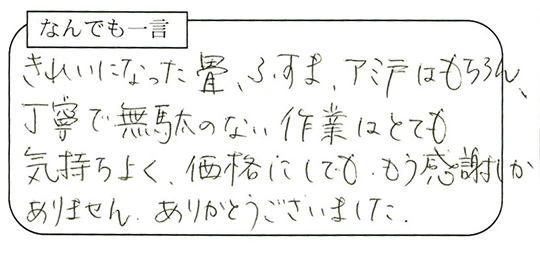 なんでも一言
きれいになった畳、ふすま、アミ戸はもちろん、
丁寧で無駄のない作業はとても
気持ちよく、価格にしても、もう感謝しか
ありません。ありがとうございました。